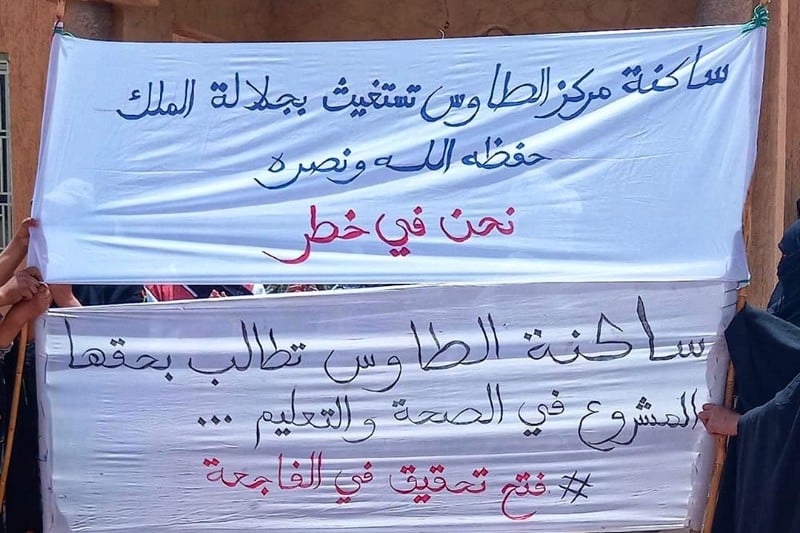 ساكنة مركز الطاوس تستغيث بجلالة الملك
حفظه الله ونصره
نحن في خطر
ساكنة الطاوس تطالب بحقها
المشروع في الصحة والتعليم ...
# فتح تحقيق في الفاجعة